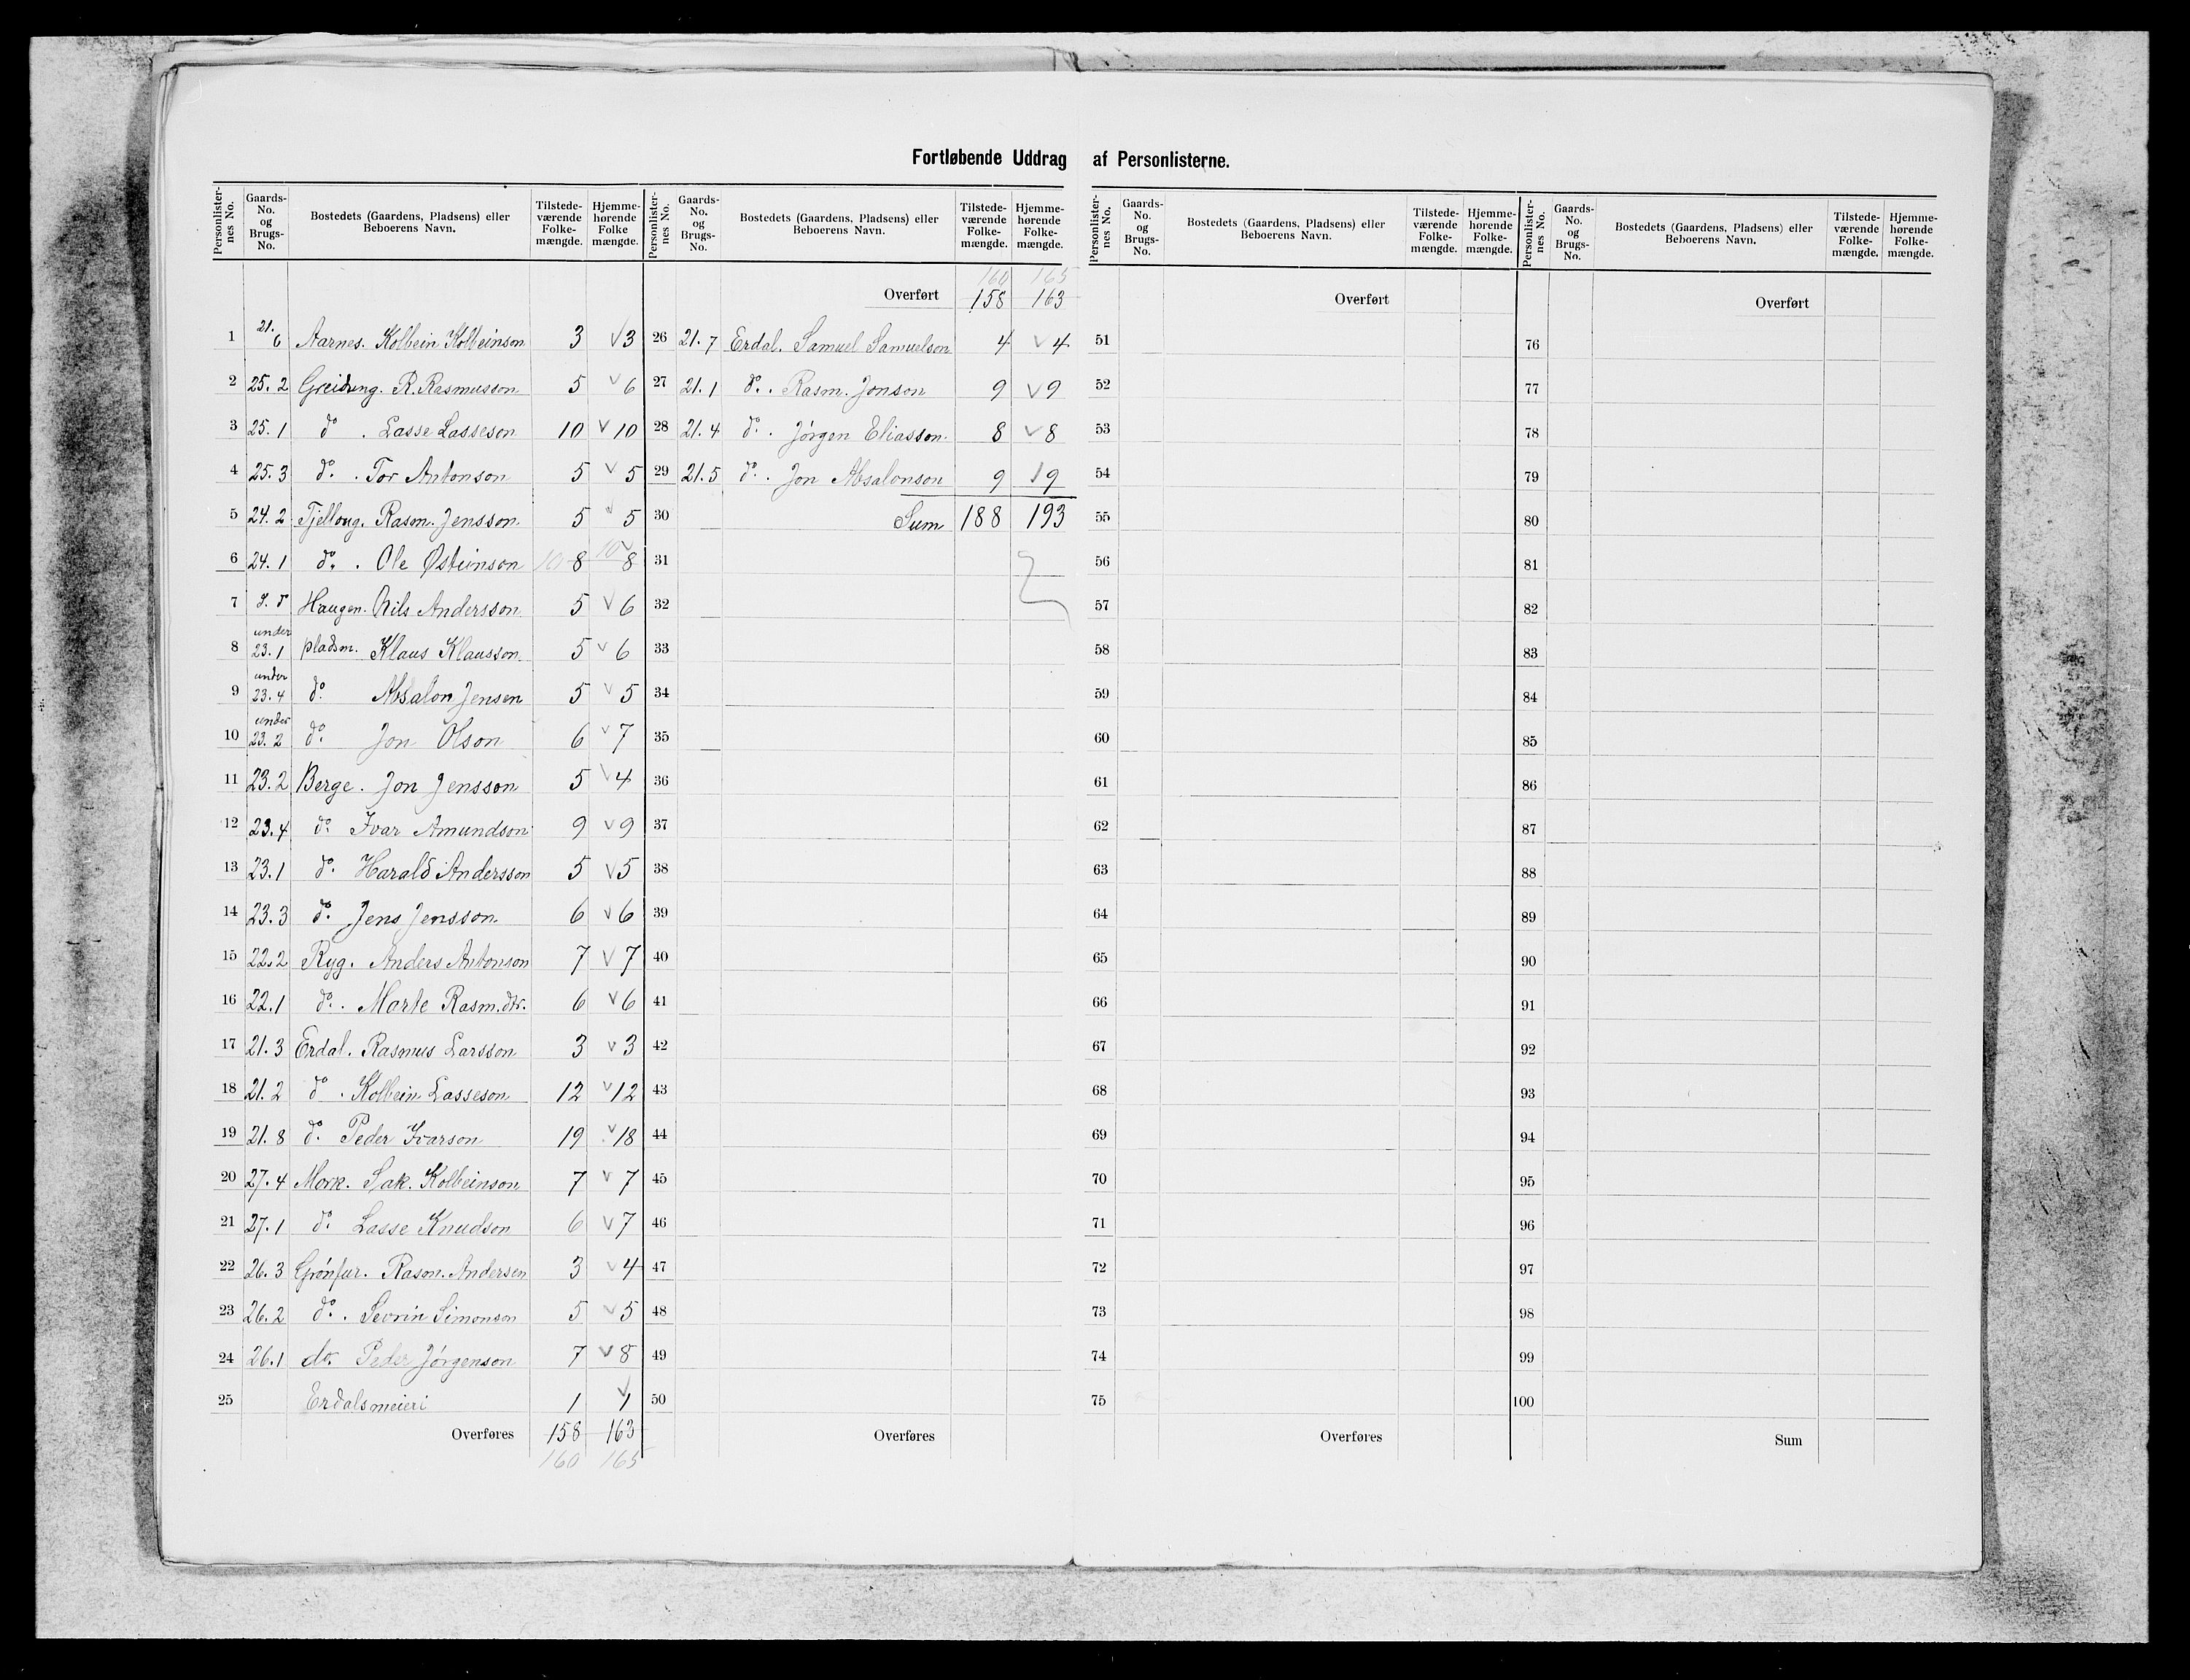 Fortløbende Uddrag af Personlisterne.
Personlister-nes No. | Gaards-No. og Brugs-No. | Bostedets (Gaardens, Pladsens) eller Beboerens Navn. | Tilstede-værende Folke-mængde. | Hjemme-hørende Folke mængde.
1 21. 6 Aarnes. Kolbein Kolbeinson 3 √3
2 25. 2 Greidung. R. Rasmusson 5 √ 6
3 25. 1 do . Lasse Lasseson 10 √ 10
4 25. 3 do. . Tor Antonson 5 √ 5
5 24. 2 Tjelloug. Rasm. Jensson 5 √ 5
6 24. 1 do. . Ole Østeinson 10 8 10 √ 8
7 Haugen. Nils Andersson 5 √ 6
8 under 23. 1 pladsm. Klaus Klausson 5 √ 6
9 under 23. 4 do. Absalon Jensen 5 √ 5
10 under 23. 2 do. Jon Olson 6 √ 7
11 23. 2 Berge. Jon Jensson 5 √ 4
12 23. 4 do. Ivar Amundson 9 √ 9
13 23. 1 do. Harald Andersson 5 √ 5
14 23. 3 do. Jens Jensson 6 √ 6
15 22. 2 Ryg. Anders Antonson 7 √ 7
16 22. 1 do. . Marte Rasm.dtr. 6 √ 6
17 21. 3 Erdal. Rasmus Larsson 3 √ 3
18 21. 2 do . Kolbein Lasseson 12 √ 12
19 21. 8 do. Peder Ivarson 19 √ 18
20 27. 4 Mork. Sak. Kolbeinson 7 √ 7
21 27. 1 do. Lasse Knudson 6 √ 7
22 26. 3 Grónfur. Rasm. Andersen 3 √ 4
23 26. 2 do. . Sevrin Simonson 5 √ 5
24 26. 1 do. Peder Jórgenson 7 √ 8
25 Erdalsmeieri 1 √ 1
Overføres 158 163
160 165
Personlister-nes No. | Gaards-No. og Brugs-No. | Bostedets (Gaardens, Pladsens) eller Beboerens Navn. | Tilstede-værende Folke-mængde. | Hjemme-hørende Folke-mængde.
160 165
Overført 158 163
26 21. 7 Erdal. Samuel Samuelson 4 √ 4
27 21. 1 do. . Rasm. Jonson 9 √ 9
28 21. 4 do. . Jórgen Eliasson 8 √ 8
29 21. 5 do. . Jon Absalonson 9 √ 9
30 Sum 188 193
31
32
33
34
35
36
37
38
39
40
41
42
43
44
45
46
47
48
49
50
Overføres
Personlister-nes No. | Gaards-No. og Brugs-No. | Bostedets (Gaardens, Pladsens) eller Beboerens Navn. | Tilstede-værende Folke-mængde. | Hjemme-hørende Folke-mængde.
Overført
51
52
53
54
55
56
57
58
59
60
61
62
63
64
65
66
67
68
69
70
71
72
73
74
75
Overføres
Personlister-nes No. | Gaards-No. og Brugs-No. | Bostedets (Gaardens, Pladsens) eller Beboerens Navn. | Tilstede-værende Folke-mængde. | Hjemme-hørende Folke-mængde.
Overført
76
77
78
79
80
81
82
83
84
85
86
87
88
89
90
91
92
93
94
95
96
97
98
99
100
Sum